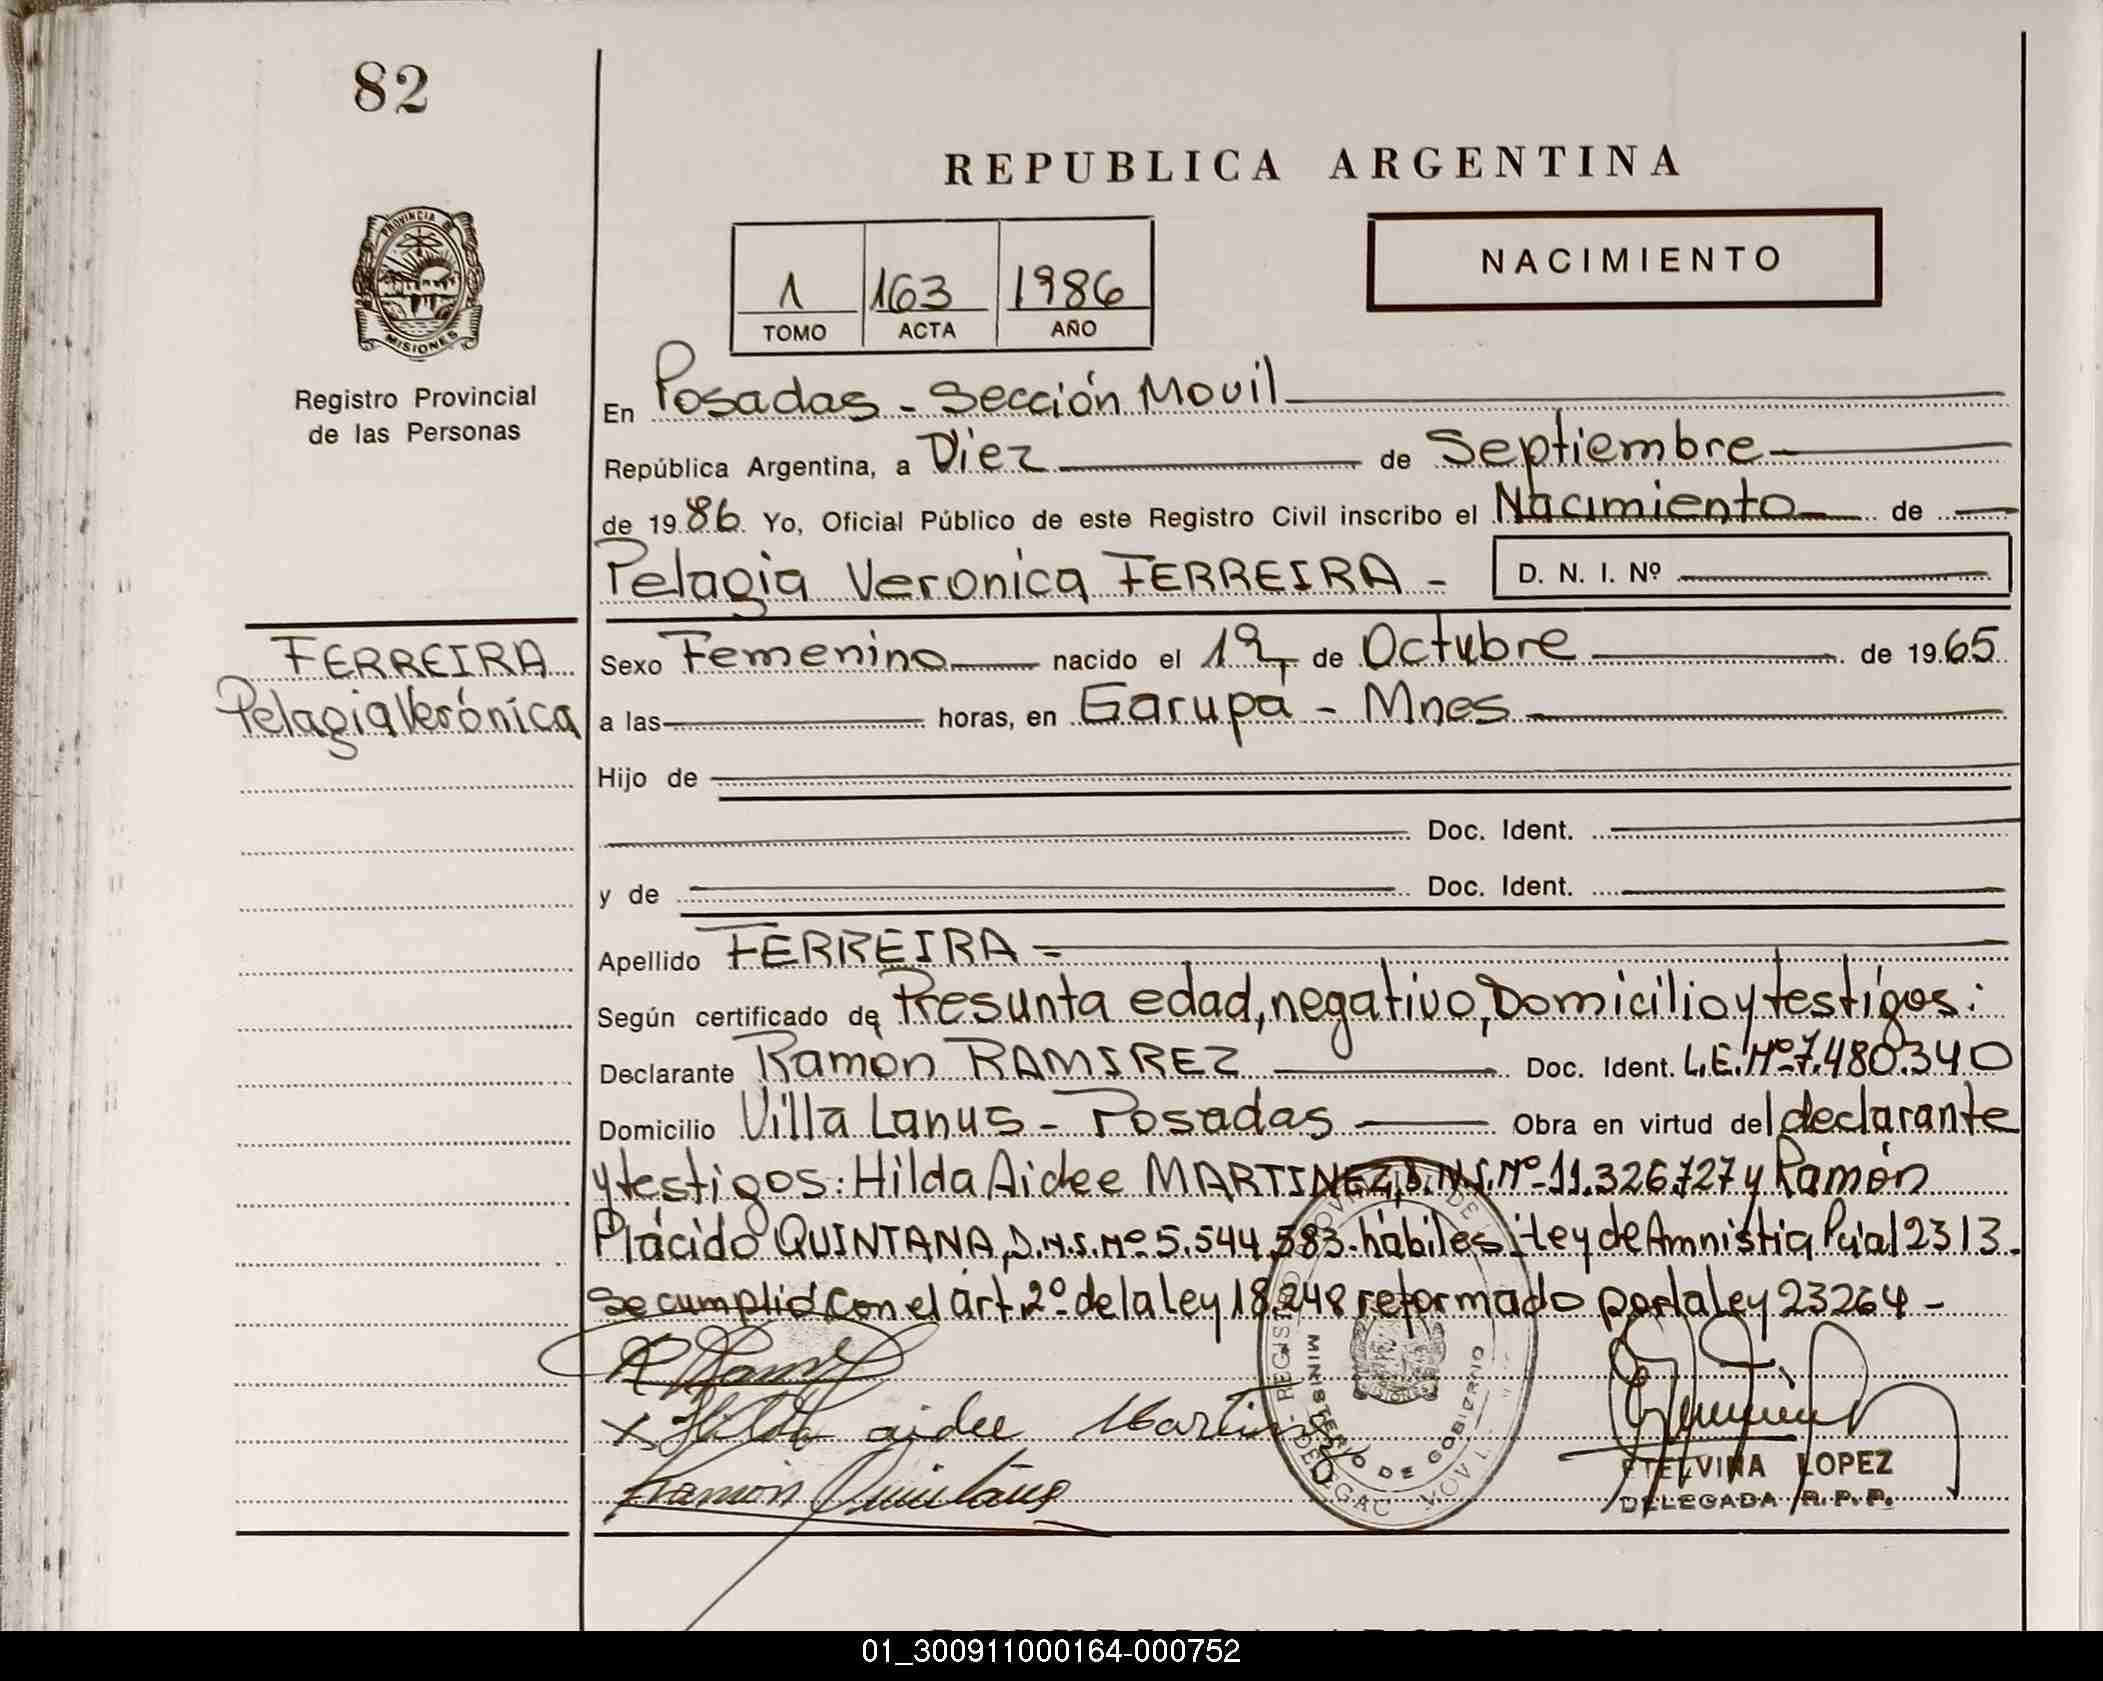 82
REPUBLICA ARGENTINA
PROVINCIA DE
MISIONES
Registro Provincial
de las Personas
1 163 1986
TOMO ACTA AÑO
NACIMIENTO
En Posadas - Sección Movil
República Argentina, a Diez de Septiembre
de 1986 Yo, Oficial Público de este Registro Civil inscribo el Nacimiento de
Pelagia Veronica FERREIRA - D. N. I. Nº
FERREIRA
Pelagia Verónica
Sexo Femenino nacido el de Octubre de 1965
a las horas, en Garupá - Mnes
Hijo de
Doc. Ident.
y de Doc. Ident.
Apellido FERREIRA =
Según certificado de Presunta edad, negativo, Domicilio y testigos:
Declarante Ramón RAMIREZ Doc. Ident. L.E. Nº 7.480.340
Domicilio Villa Lanus - Posadas Obra en virtud del declarante
y testigos: Hilda Aidee MARTINEZ, D.N.I. Nº 11.326.727 y Ramón
Plácido QUINTANA, D.N.I. Nº 5.544.583. hábiles - Ley de Amnistia Pcial 2313.
Se cumplió con el árt. 2º de la ley 18.248 reformado por la ley 23264 -
Hilda aidee Martinez
Ramón Quintana
MINISTERIO DE GOBIERNO
ETELVINA LOPEZ
DELEGADA R. P. P.
01_300911000164-000752